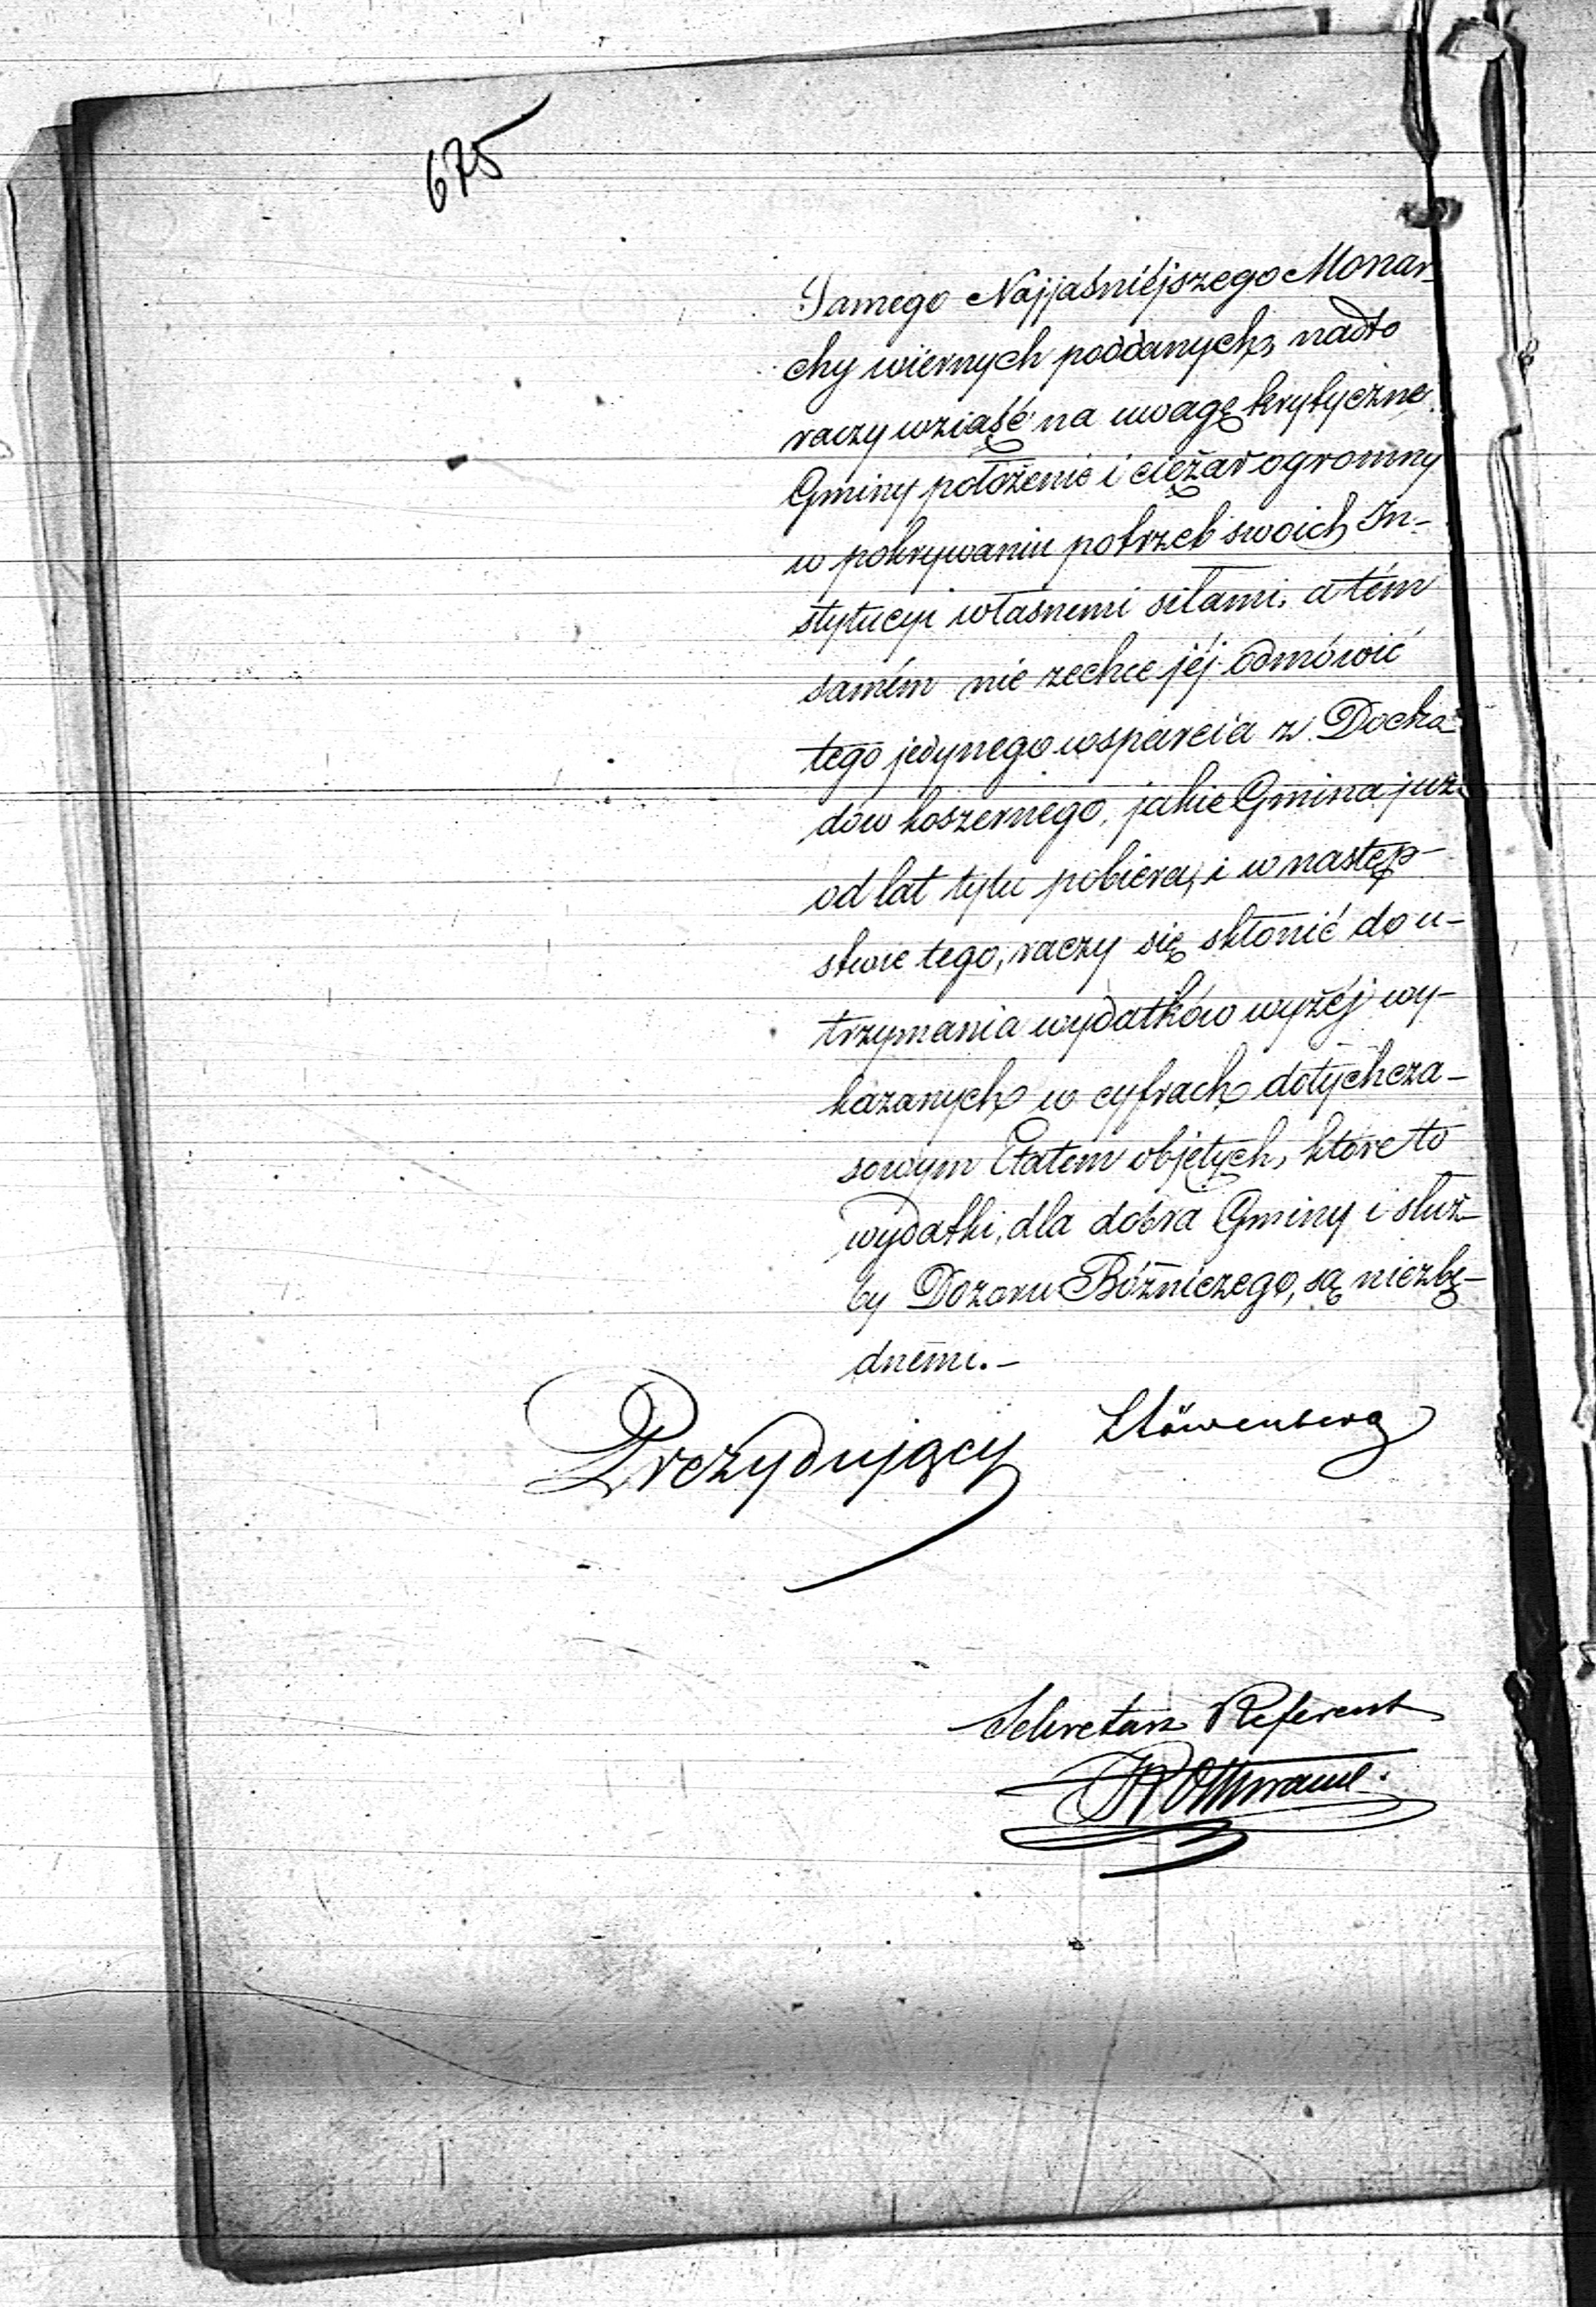 675
Samego Najjaśniéjszego Monar-
chy wiernych poddanych, nadto
raczy wziąść na uwagę krytyczne
Gminy położenie i ciężar ogromny
w pokrywaniu potrzeb swoich In-
stytucyi własnemi siłami, a tém
samém nie zechce jéj odmówić
tego jedynego wsparcia z Docho-
dów koszernego, jakie Gmina już
od lat tylu pobiera, i w następ-
stwie tego, raczy się skłonić do u-
trzymania wydatków wyżéj wy-
kazanych w cyfrach dotychcza-
sowym Etatem objętych, które to
wydatki, dla dobra Gminy i służ-
by Dozoru Bóżniczego, są niezbę-
dnemi.-
Prezydujący Löwenberg
Sekretarz Referent